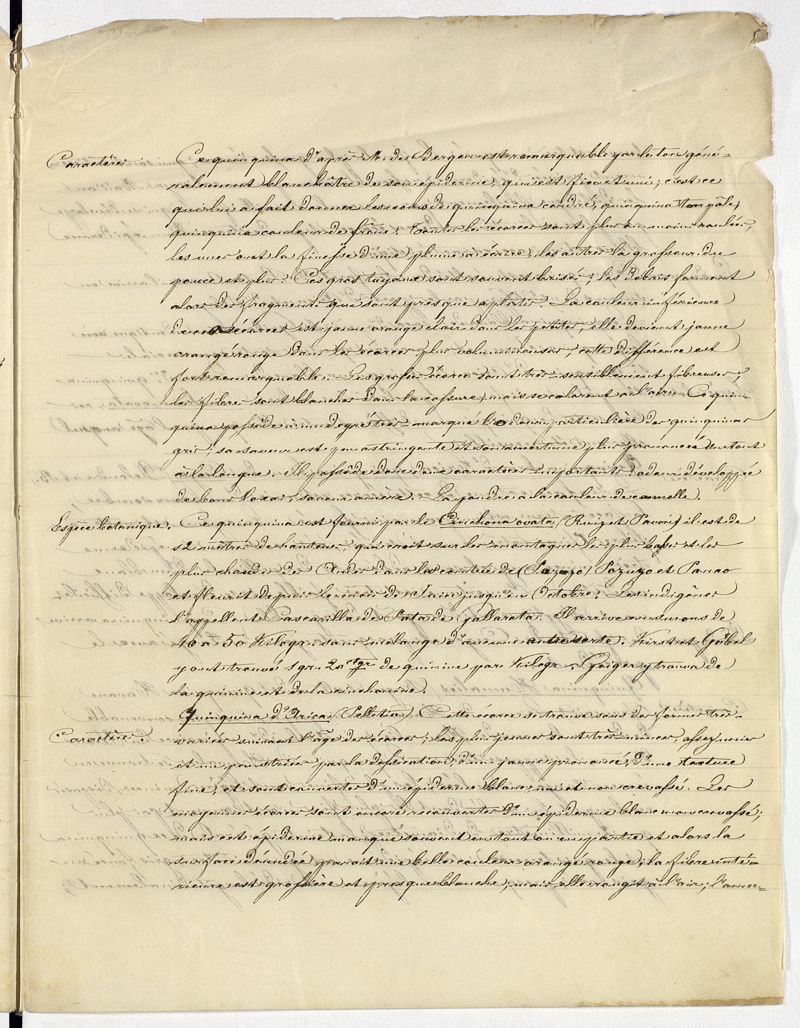 5
Caractères Ce quinquina d'après M. de Bergen est remarquable par le ton géné-
ralement blanchâtre de son épiderme, qui est fin et uni; c'est ce
qui lui a fait donner les noms de quinquina cendré, quinquina Ten pâle,
quinquina couleur de frêne; toutes les écorces sont plus ou moins roulées,
les unes ont la finesse d'une plume à écrire, les autres la grosseur du
pouce et plus. Ces gros tuyaux sont souvent brisés, les débris forment
alors des fragments qui sont presque aplatis. La couleur inférieure
de ces écorces est jaune orange clair dans les petites, elle devient jaune
orange rouge dans les écorces plus volumineuses, cette différence est
fort remarquable. Les grosses écorces sont très sensiblement fibreuses,
les fibres sont blanches dans la cassure, mais se colorent à l'air. Ce quin-
quina possède à un degré très marqué l'odeur particulière des quinquinas
gris; sa saveur est peu astringente et son amertume plus prononcée surtout
à la longue. Il possède donc deux caractères importants odeur développée
de bons Loxas, saveur amère. La poudre a la couleur de cannelle.
Espèce botanique. Ce quinquina est fourni par le Cinchona ovata (Ruiz et Pavon) il est de
12 mètres de hauteur, qui croit sur les montagnes les plus basses et les
plus chaudes des Andes dans la contrée de (Pozuzo) Pozuzo et Panao
et fleurit depuis le mois de Juin jusqu'en Octobre. Les indigènes
l'appellent Cascarilla de Pata de gallareta. Il arrive en surons de
40 à 50 Kilogr. sans mélange d'aucune autre sorte. Kirst et Göbel
y ont trouvé 1 gr. 20 ctgr de quinine par Kilogr. Geiger y trouva de
la quinine et de la cinchonine.
Quinquina d'Arica (Pelletier). Cette écorce se trouve sous des formes très
Caractères. variées suivant l'âge des écorces; les plus jeunes sont très minces, assez unies
et un peu striées par la dessication, d'un jaune prononcé, d'une texture
fine, et sont couvertes d'un épiderme blanc, uni et non crevassé. Les
moyennes écorces sont encore recouvertes d'un épiderme blanc non crevassé;
mais cet épiderme manque souvent en tout ou en partie et alors la
surface dénudée parait une belle couleur orange rouge; la fibre inté-
rieure est grossière et presque blanche; mais elle rougit à l'air; l'amer-